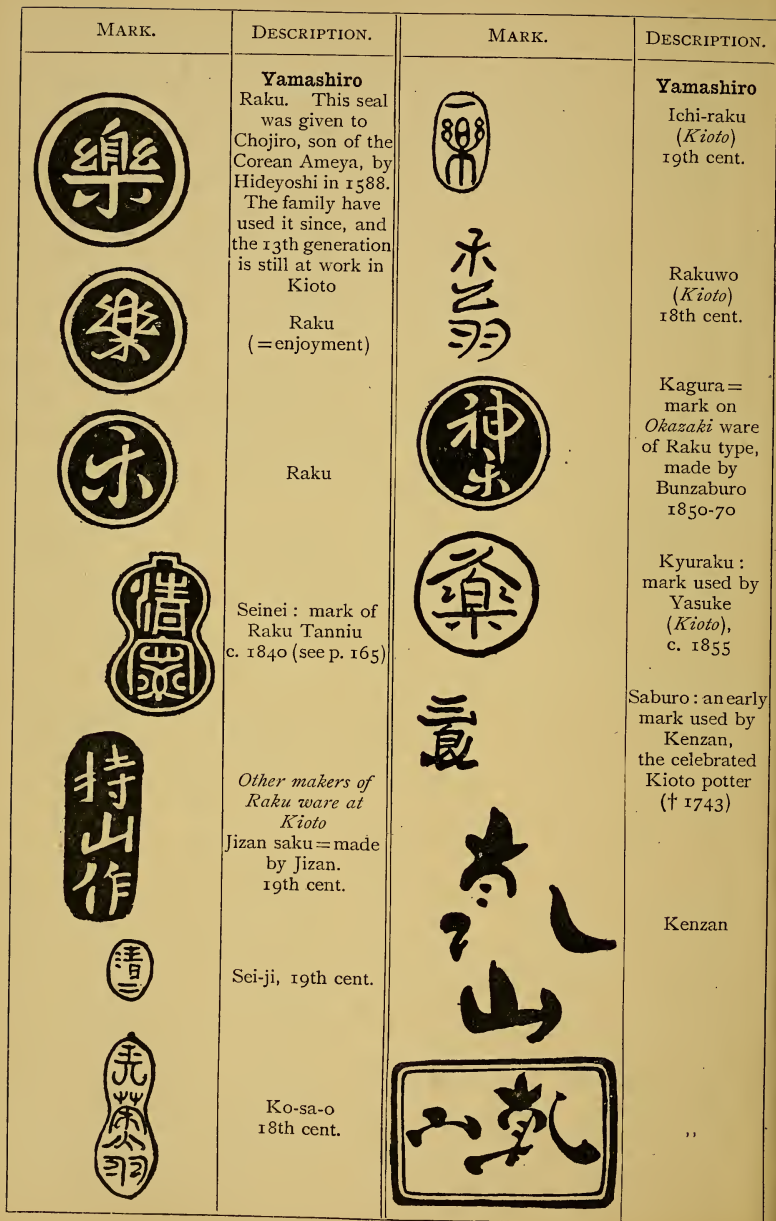 MARK.
DESCRIPTION.
樂
Yamashiro
Raku. This seal
was given to
Chojiro, son of the
Corean Ameya, by
Hideyoshi in 1588.
The family have
used it since, and
the 13th generation
is still at work in
Kioto
樂
Raku
(=enjoyment)
乐
Raku
清
Seinei : mark of
Raku Tanniu
c. 1840 (see p. 165)
持
山
作
Other makers of
Raku ware at
Kioto
Jizan saku=made
by Jizan.
19th cent.
清
二
Sei-ji, 19th cent.
Ko-sa-o
18th cent.
MARK.
DESCRIPTION.
Yamashiro
一
樂
Ichi-raku
(Kioto)
19th cent.
乐
翁
Rakuwo
(Kioto)
18th cent.
神
乐
Kagura=
mark on
Okazaki ware
of Raku type,
made by
Bunzaburo
1850-70
Kyuraku :
mark used by
Yasuke
(Kioto),
c. 1855
三
良
Saburo : an early
mark used by
Kenzan,
the celebrated
Kioto potter
(† 1743)
乾
山
Kenzan
乾山
,,